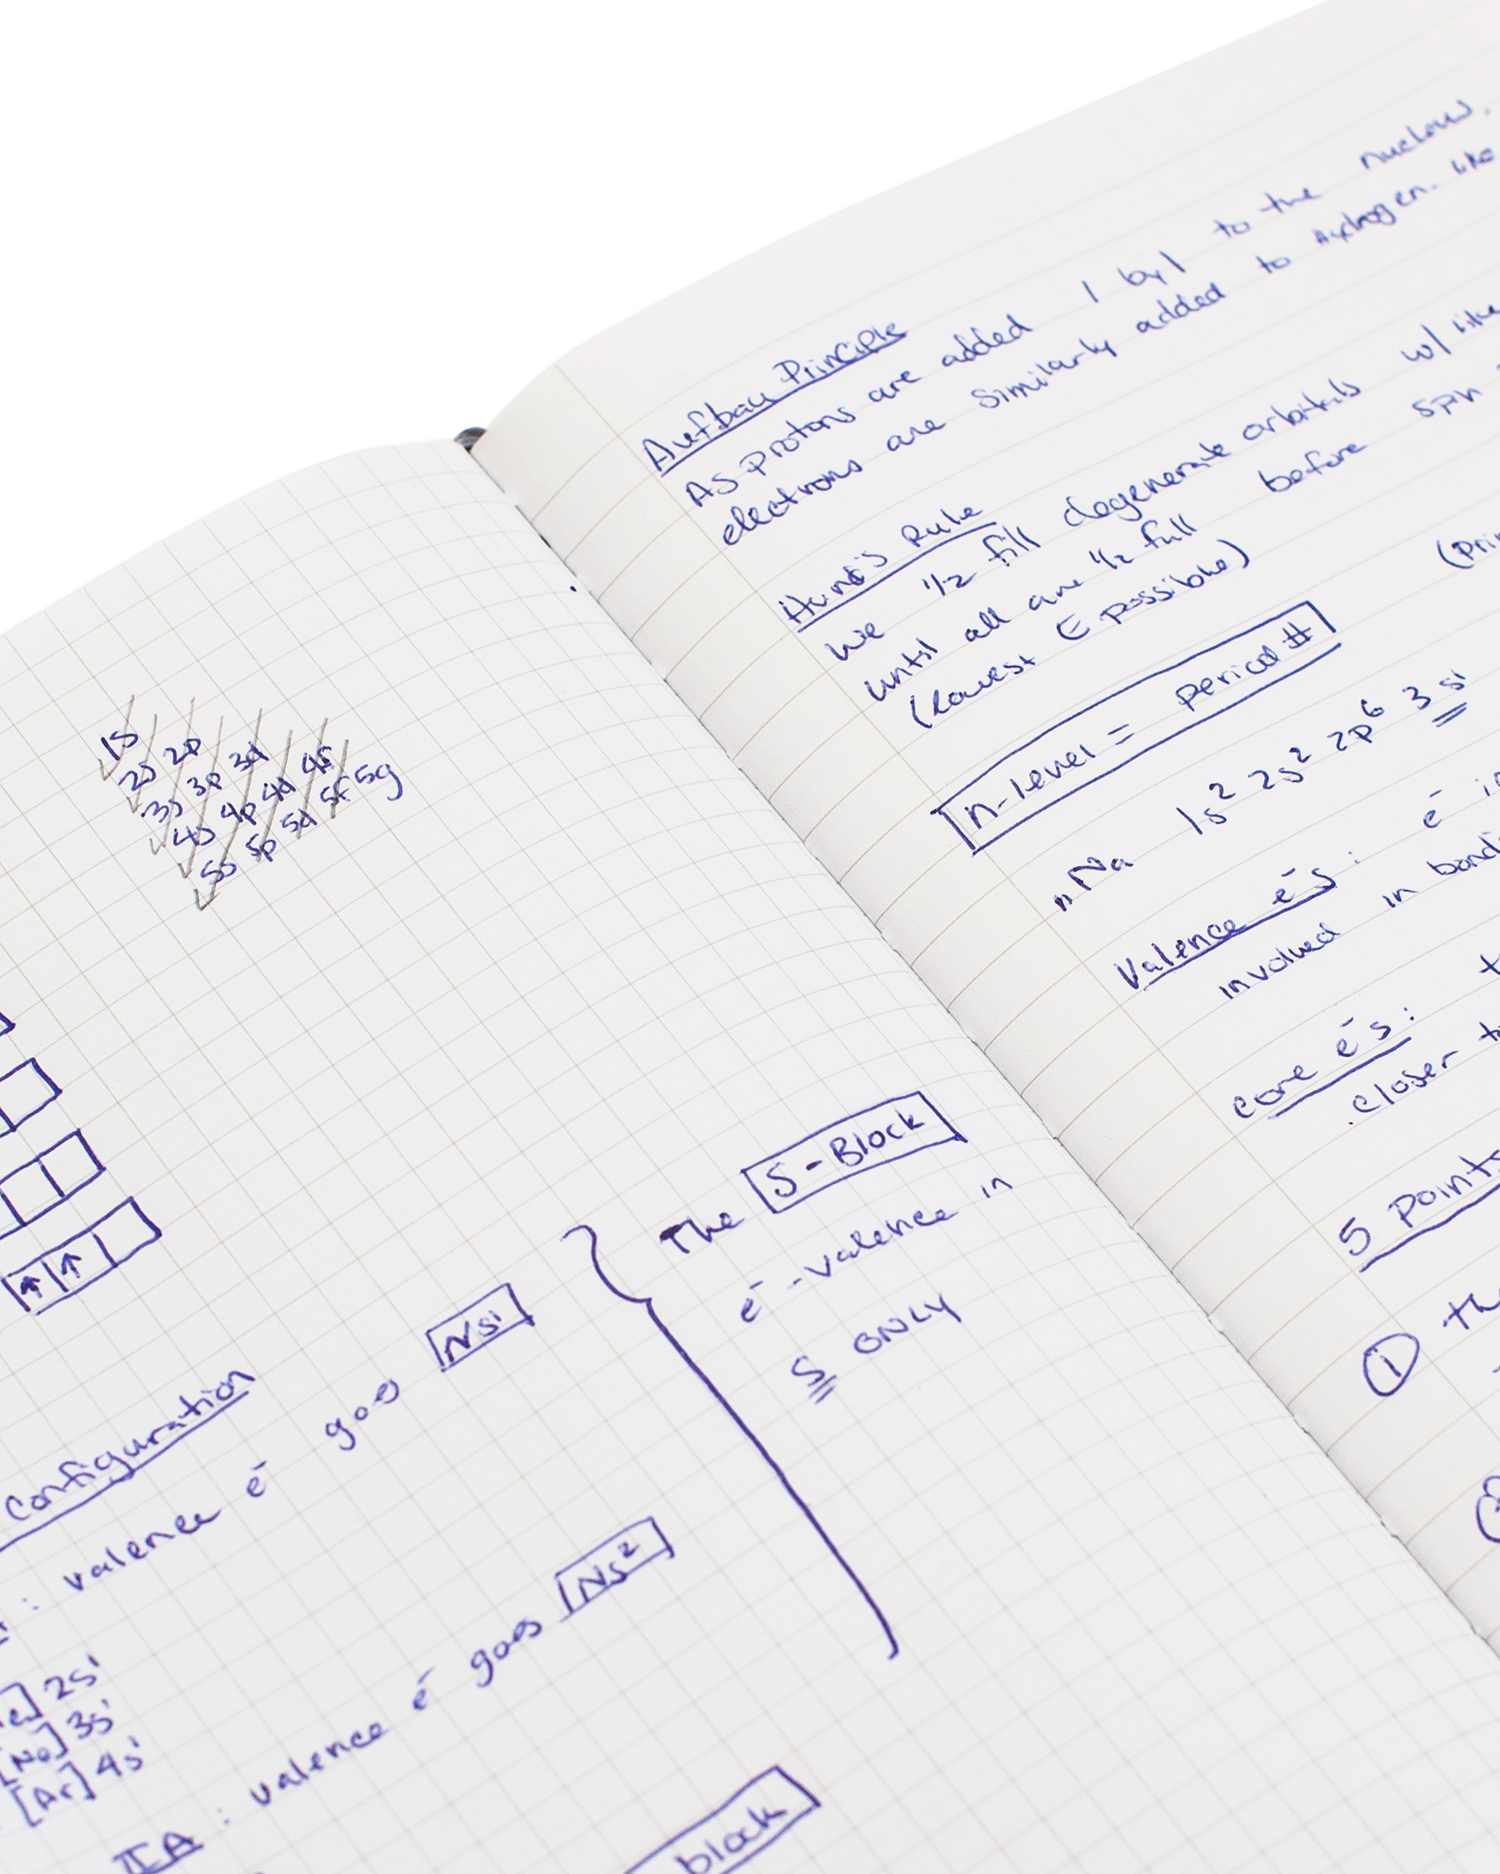 1s
2s 2p
3s 3p 3d
4s 4p 4d 4f
5s 5p 5d 5f 5g
Configuration
: valence e⁻ goes Ns¹
2s¹
[Ne] 3s¹
[Ar] 4s¹
IIA : valence e⁻ goes Ns²
The S-Block
e⁻-valence in
S ONLY
block
Aufbau Principle
As protons are added 1 by 1 to the nucleus,
electrons are similarly added to Hydrogen. like
Hund's Rule
We 1/2 fill degenerate orbitals w/ like
until all are 1/2 full before
(lowest E possible)
n-level = period #
₁₁Na 1s² 2s² 2p⁶ 3s¹
Valence e⁻s: e⁻
involved in
core e⁻s:
closer
5 points
①